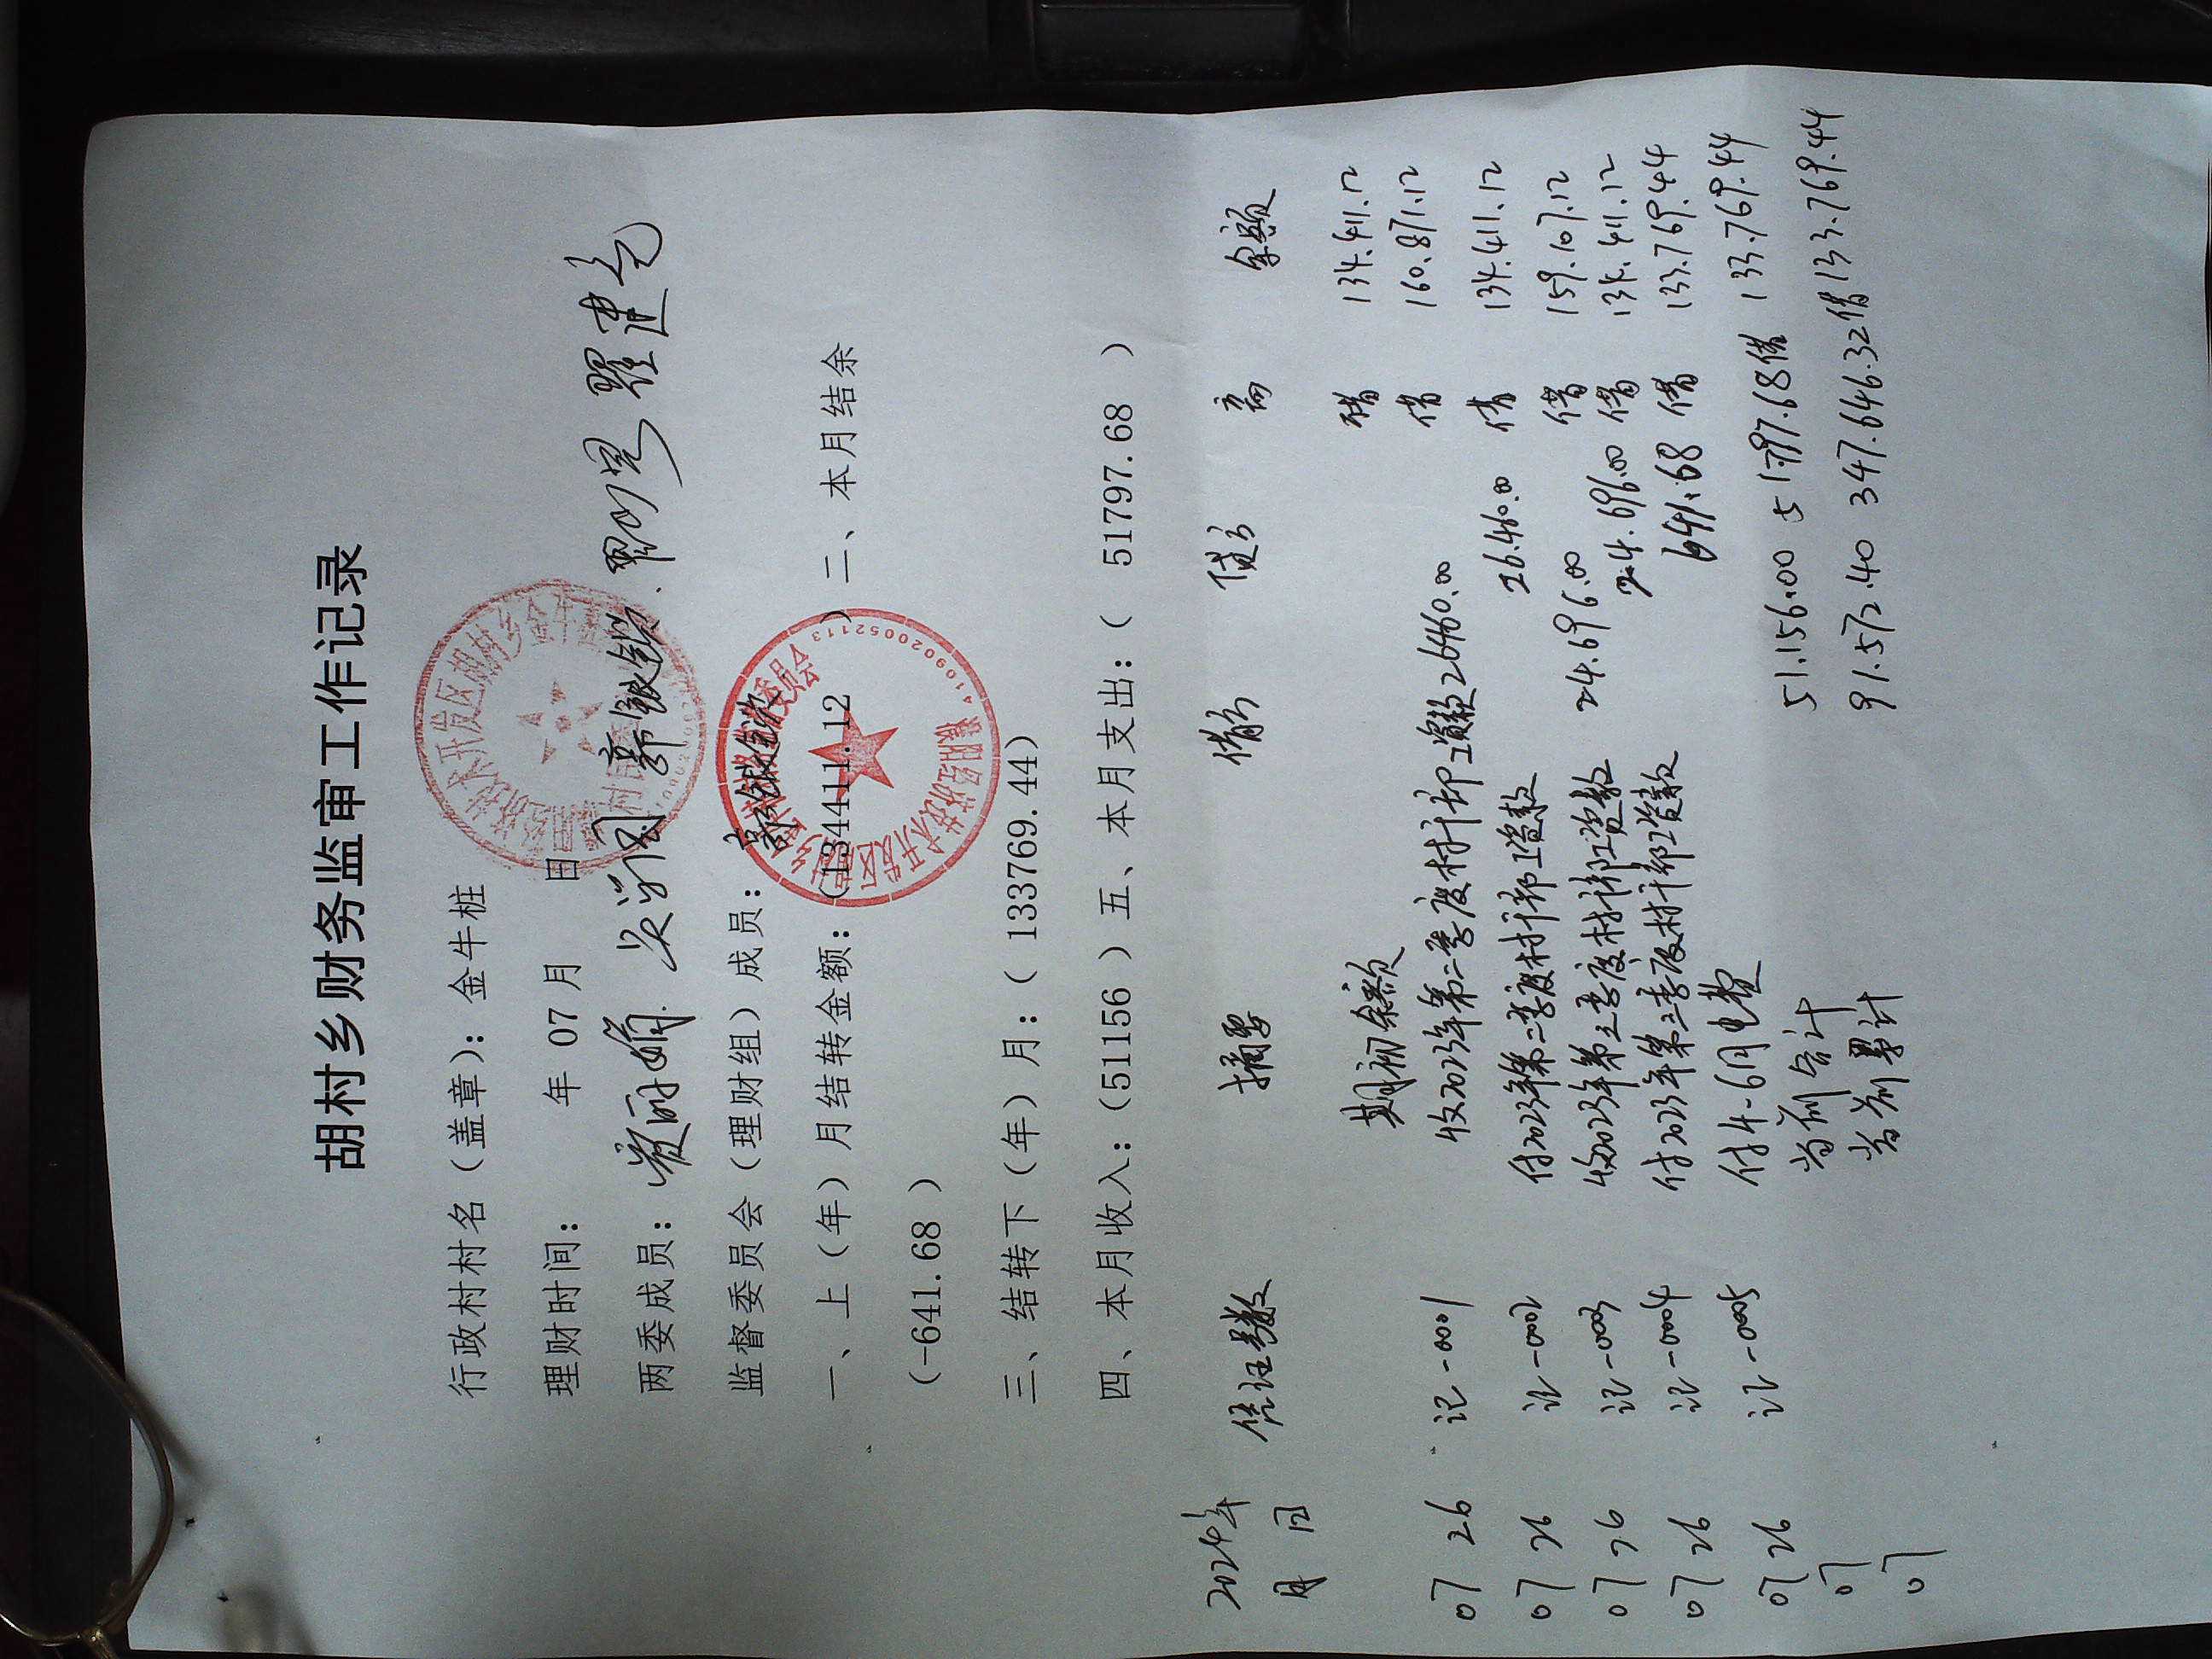 胡村乡财务监审工作记录
行政村村名（盖章）：金牛桩
理财时间： 年 07 月 日
两委成员：
监督委员会（理财组）成员：
一、上（年）月结转金额：（134411.12 ）二、本月结余
（-641.68 ）
三、结转下（年）月：（ 133769.44）
四、本月收入：（51156 ）五、本月支出：（ 51797.68 ）
4109020052113
2024年 凭证号数 摘要 借方 贷方 方向 余额
月 日
期初余额 借 134.411.12
07 26 记-0001 收2023年第二季度村干部工资款 26460.00 借 160.871.12
07 26 记-0002 付2023年第二季度村干部工资款 26.460.00 借 134.411.12
07 26 记-0003 收2023年第三季度村干部工资款 24.696.00 借 159.107.12
07 26 记-0004 付2023年第三季度村干部工资款 24.696.00 借 134.411.12
07 26 记-0005 付4-6月电费 641.68 借 133.769.44
07 当前合计 51.156.00 51797.68 借 133.769.44
07 当前累计 91.572.40 347.646.32 借 133.769.44